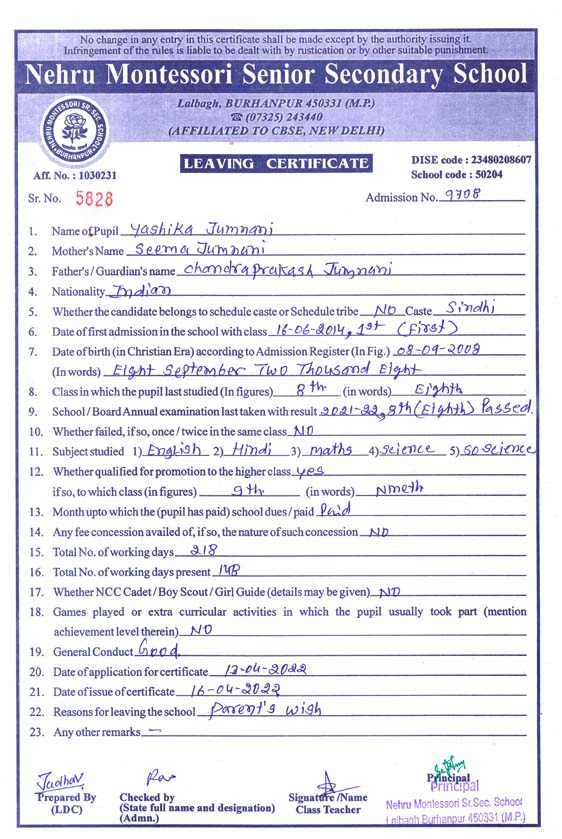 No change in any entry in this certificate shall be made except by the authority issuing it.
Infringement of the rules is liable to be dealt with by rustication or by other suitable punishment.
Nehru Montessori Senior Secondary School
Lalbagh, BURHANPUR 450331 (M.P.)
☎ (07325) 243440
(AFFILIATED TO CBSE, NEW DELHI)
NEHRU MONTESSORI SR. SEC. SCHOOL
BURHANPUR
LEAVING CERTIFICATE
DISE code : 23480208607
Aff. No. : 1030231
School code : 50204
Sr. No. 5828
Admission No. 9708
1. Name of Pupil Yashika Jumnani
2. Mother's Name Seema Jumnani
3. Father's / Guardian's name Chandraprakash Jumnani
4. Nationality Indian
5. Whether the candidate belongs to schedule caste or Schedule tribe NO Caste Sindhi
6. Date of first admission in the school with class 16-06-2014, 1st (First)
7. Date of birth (in Christian Era) according to Admission Register (In Fig.) 08-09-2008
(In words) Eight September Two Thousand Eight
8. Class in which the pupil last studied (In figures) 8th (in words) Eighth
9. School / Board Annual examination last taken with result 2021-22, 8th (Eighth) Passed.
10. Whether failed, if so, once / twice in the same class NO
11. Subject studied 1) English 2) Hindi 3) maths 4) science 5) SO science
12. Whether qualified for promotion to the higher class yes
if so, to which class (in figures) 9th (in words) Nineth
13. Month upto which the (pupil has paid) school dues / paid Paid
14. Any fee concession availed of, if so, the nature of such concession NO
15. Total No. of working days 218
16. Total No. of working days present 148
17. Whether NCC Cadet / Boy Scout / Girl Guide (details may be given) NO
18. Games played or extra curricular activities in which the pupil usually took part (mention
achievement level therein) NO
19. General Conduct Good
20. Date of application for certificate 13-04-2022
21. Date of issue of certificate 16-04-2022
22. Reasons for leaving the school Parent's wish
23. Any other remarks —
Jadhav
Prepared By
(LDC)
Checked by
(State full name and designation)
(Admn.)
Signature /Name
Class Teacher
Principal
Principal
Nehru Montessori Sr.Sec. School
Lalbagh Burhanpur 450331 (M.P.)